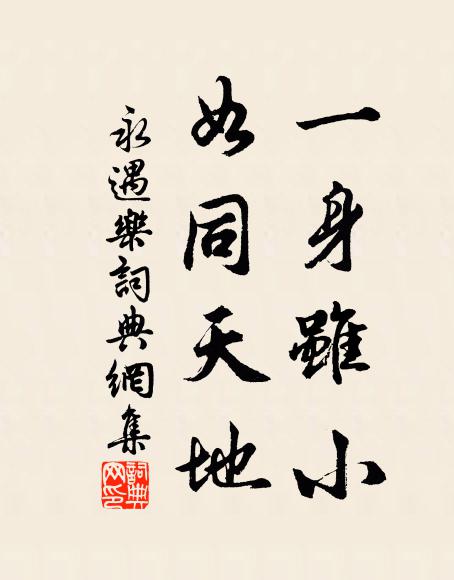 一身雖小
如同天地
永遇樂詞典網集
詞典网印